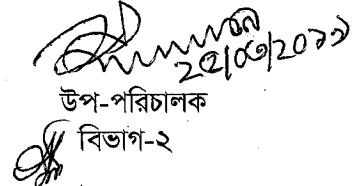 ২৫/০৩/২০১৯
উপ-পরিচালক
বিভাগ-২